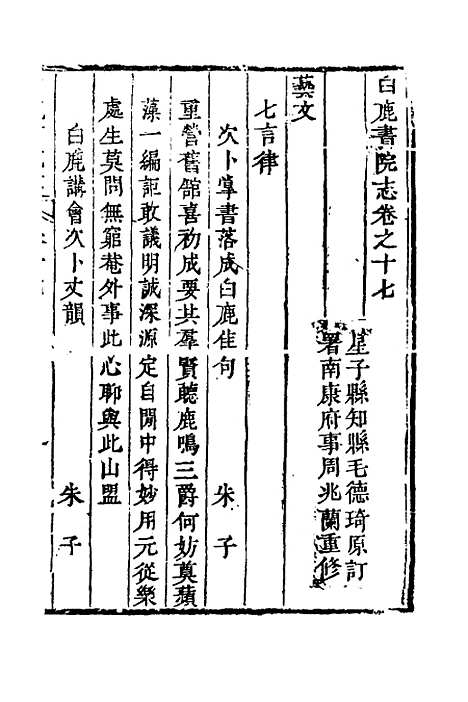 白鹿書院志卷之十七
星子縣知縣毛德琦原訂
署南康府事周兆蘭重修
藝文
七言律
次卜掌書落成白鹿佳句　朱子
重營舊館喜初成要共羣賢聽鹿鳴三爵何妨奠蘋
藻一編詎敢議明誠深源定自閒中得妙用元從樂
處生莫問無窮菴外事此心聊與此山盟
白鹿講會次卜丈韻　朱子